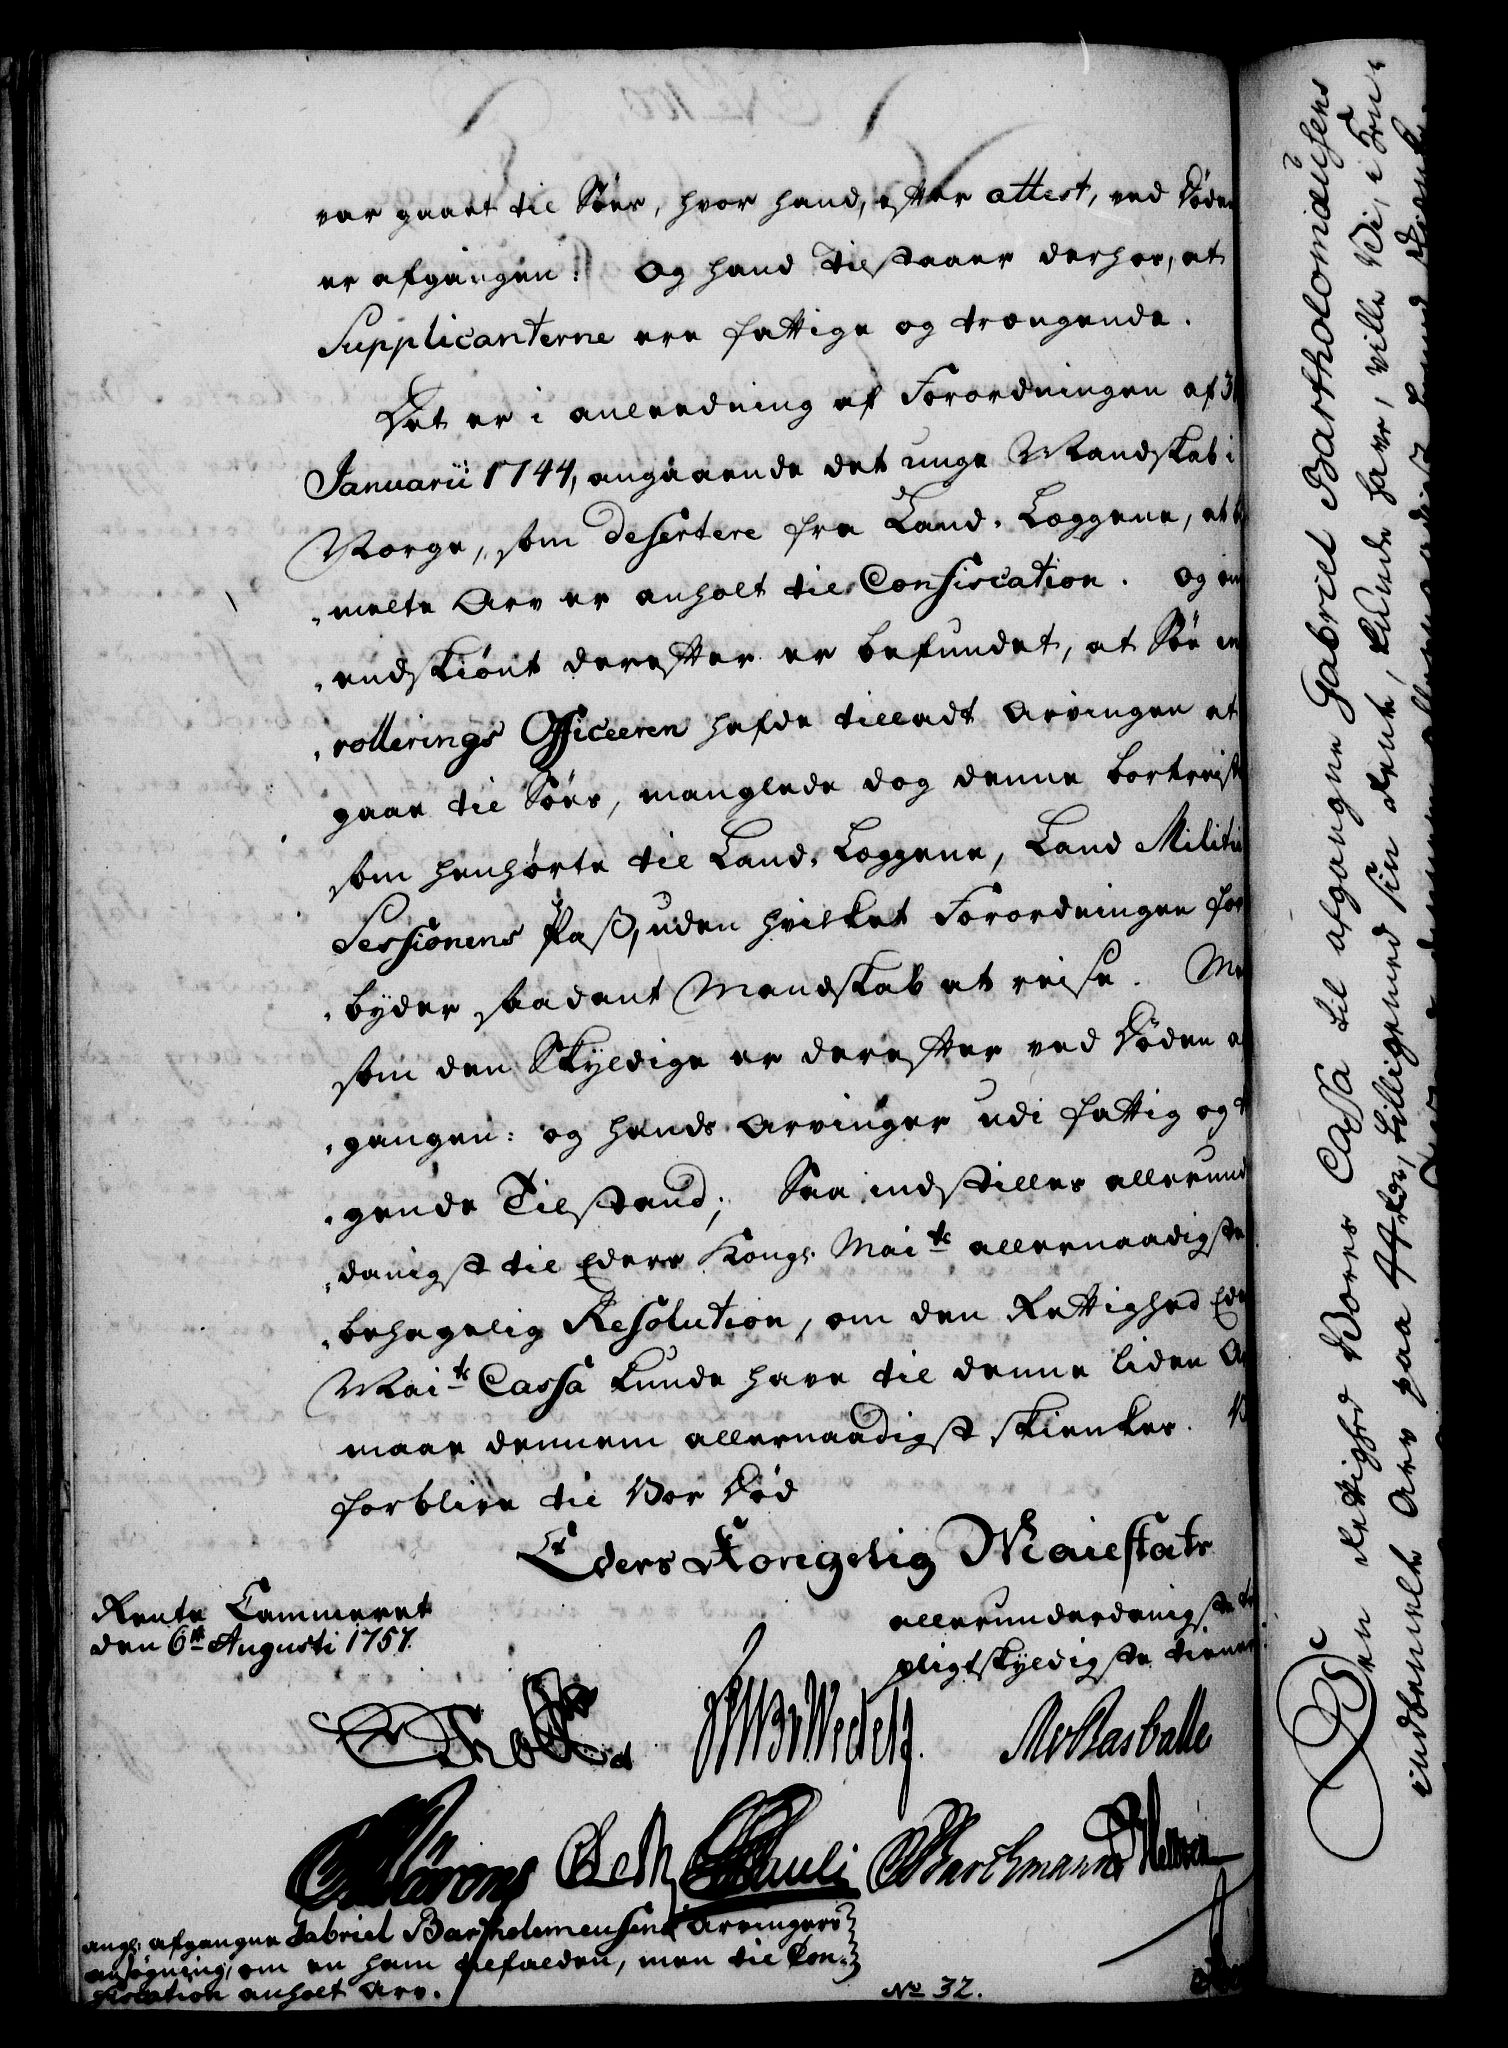 var gaaet til Söes, hvor hand, efter attest, ved Döden
er afgangen. Og hand tilstaaer derhos, at
Supplicanterne ere fattige og trængende.
Det er i anleedning af Forordningen af 3
Januarii 1744, angaaende det unge Mandskab i
Norge, som desertere fra Land-Læggene, at
melte Arv er anholt til Confiscation. Og
endskiönt derefter er befundet, at Söe
rollerings Officeeren hafde tilladt Arvingen at
gaae til Söes, manglede dog denne bortreiste
som henhörte til Land-Læggene, Land Militie
Sessionens Pass, uden hvilket Forordningen for
byder saadant Mandskab at reise.
som den Skyldige er derefter ved Döden
gangen: og hands Arvinger udi fattig og
gende Tilstand; Saa indstilles allerund
danigst til Eders Kongl. Maits allernaadigste
behagelig Resolution, om den Rettighed
Maits Cassa kunde have til denne liden
maae dennem allernaadigst skienkes.
forblive til Vor Död
Eders Kongelig Maiestæts
Rente Cammeret
den 6te Augusti 1757.
allerunderdanigste
pligtskyldigste tiener
Holstein
Wedell
Rasballe
Pauli
Barchmann
angl. afgangne Gabriel Bartholomeussens Arvingers
ansögning, om en ham tilfalden, men til Con-
fiscation anholt Arv.
No 32.
Den Rettighed Vores Cassa til afgangne Gabriel Bartholomæusens
indstemelte Arv paa 44 rdr, tilligemed sin Rente, kunde have, ville Vi, i